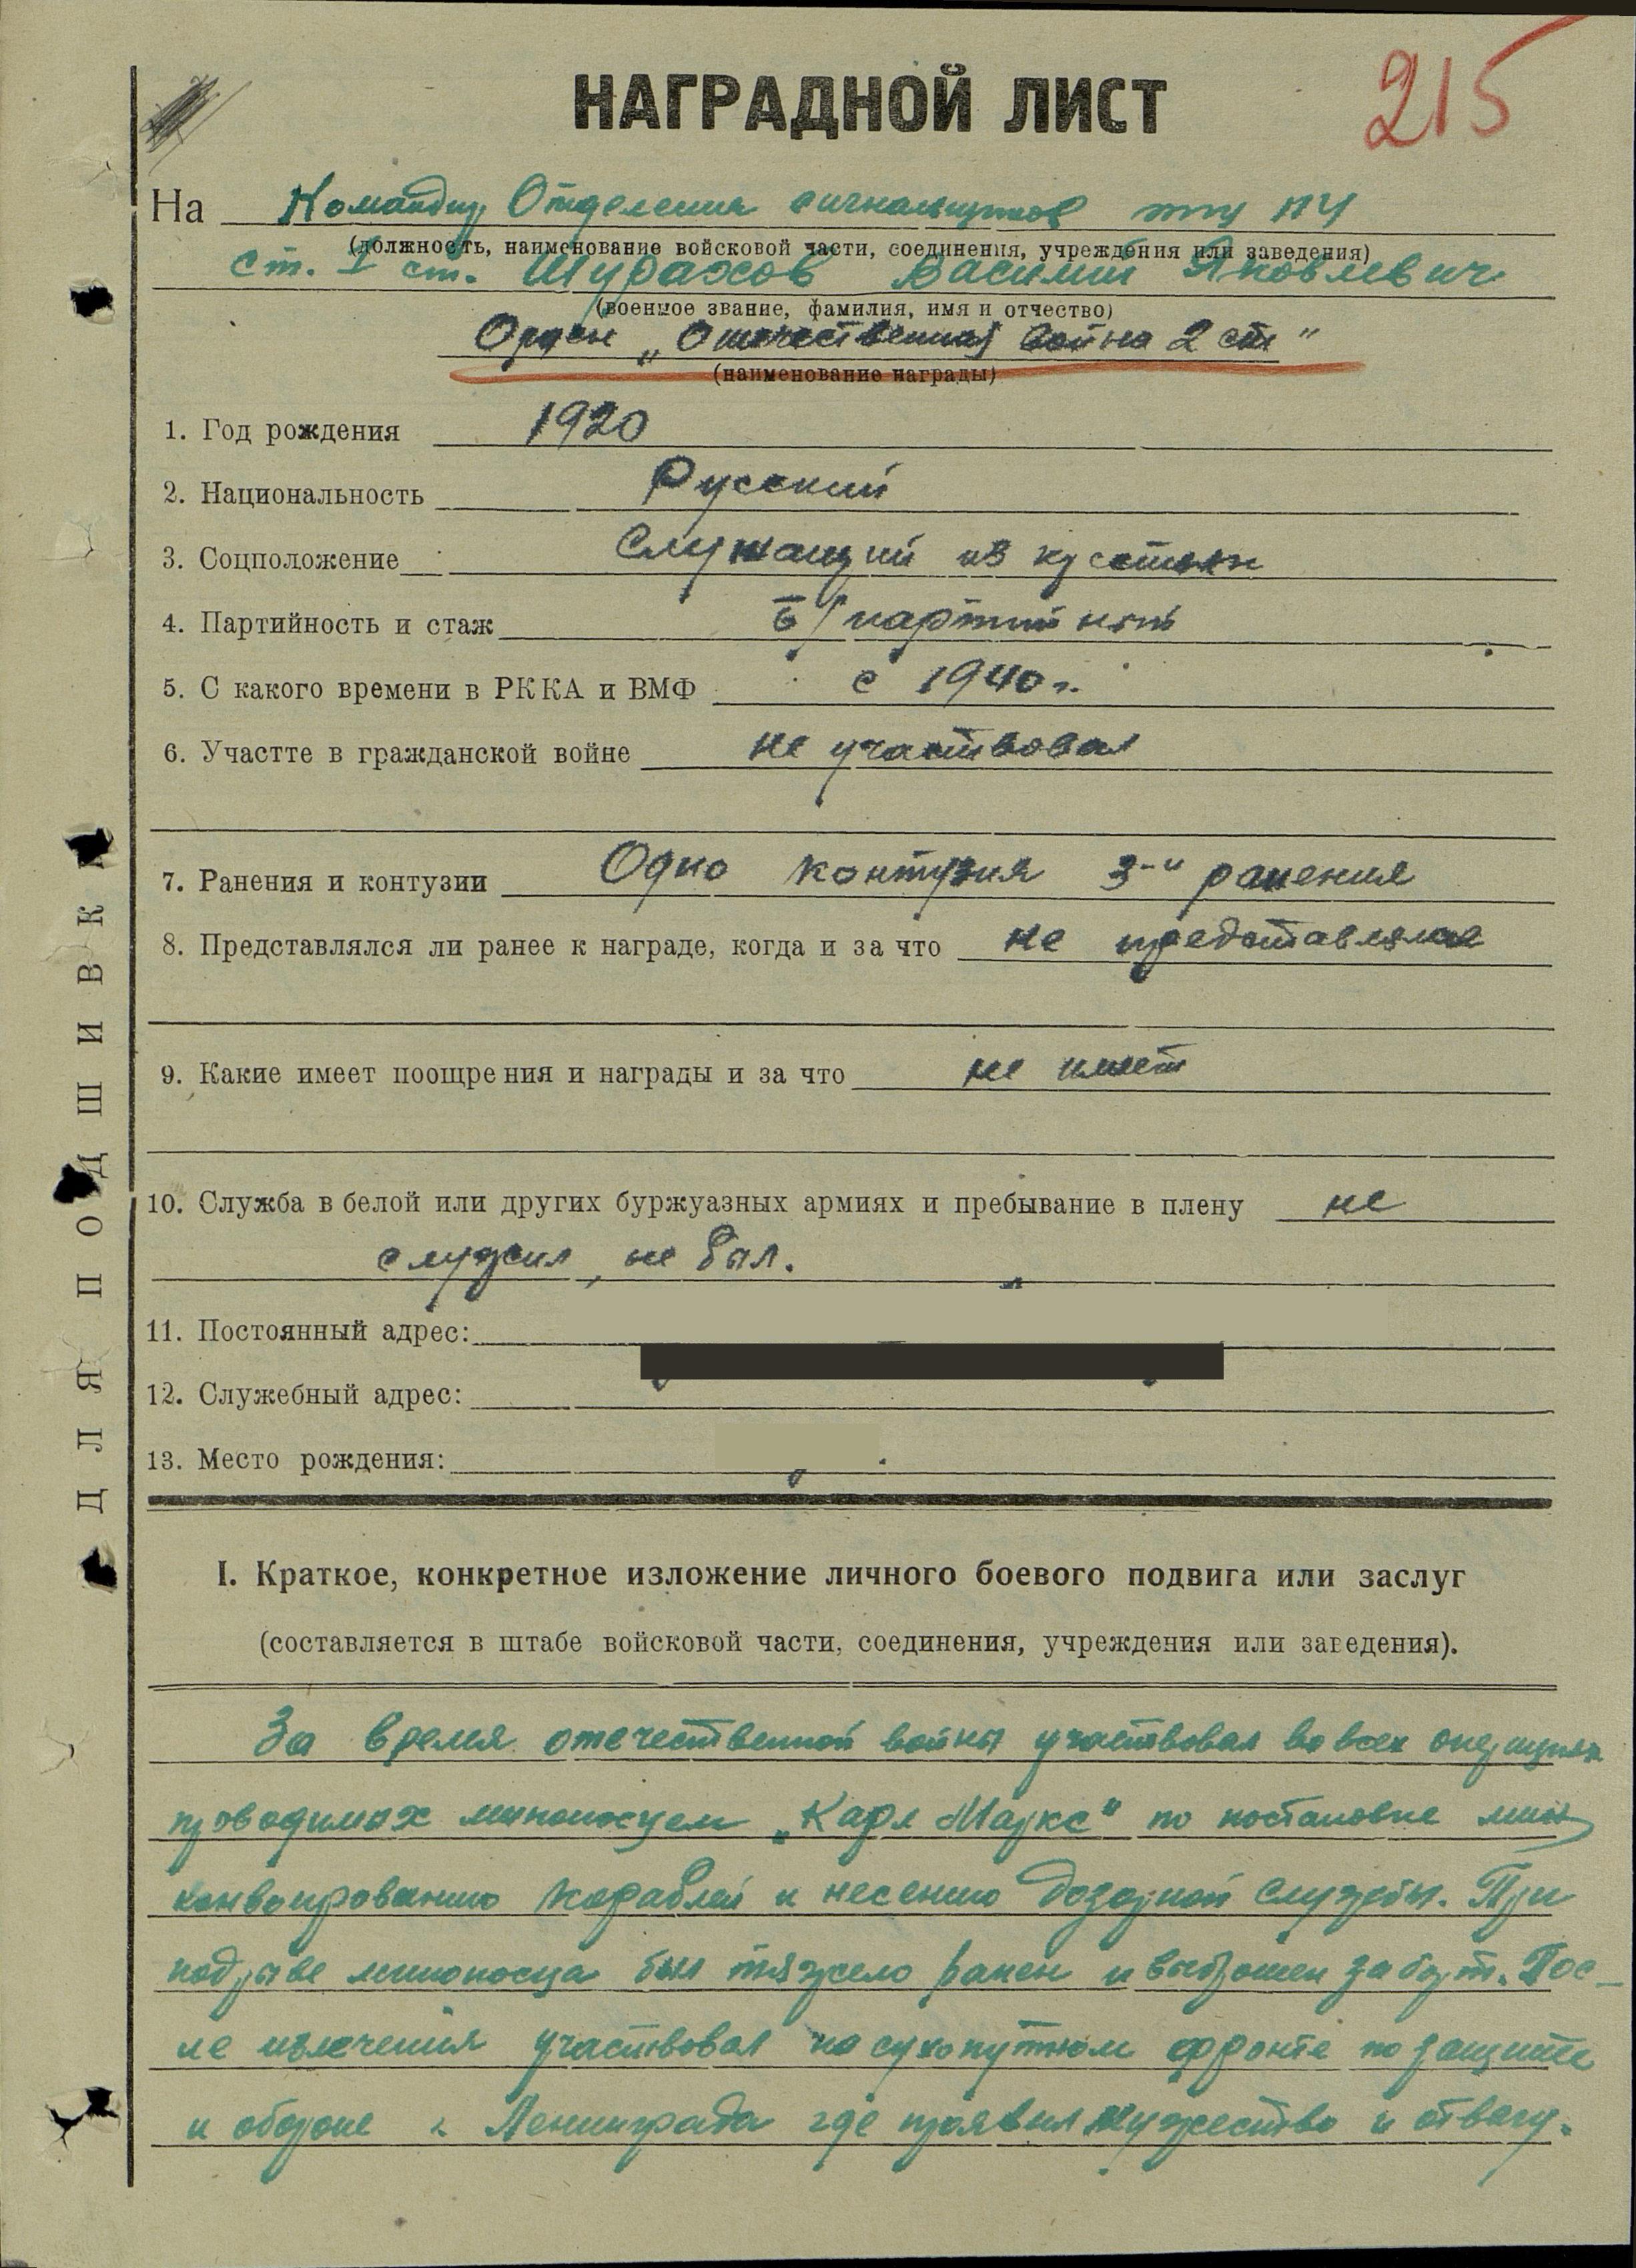 215
НАГРАДНОЙ ЛИСТ
На Командир Отделения сигнальщиков
(должность, наименование войсковой части, соединения, учреждения или заведения)
ст. I ст. Василий Яковлевич
(военное звание, фамилия, имя и отчество)
Орден „Отечественная война 2 ст"
(наименование награды)
1. Год рождения 1920
2. Национальность Русский
3. Соцположение Служащий из крестьян
4. Партийность и стаж б/партийный
5. С какого времени в РККА и ВМФ с 1940 г.
6. Участте в гражданской войне не участвовал
7. Ранения и контузии Одно контузия 3-и ранения
8. Представлялся ли ранее к награде, когда и за что не представлялся
9. Какие имеет поощрения и награды и за что не имеет
10. Служба в белой или других буржуазных армиях и пребывание в плену не
служил, не был.
11. Постоянный адрес:
12. Служебный адрес:
13. Место рождения:
I. Краткое, конкретное изложение личного боевого подвига или заслуг
(составляется в штабе войсковой части, соединения, учреждения или заведения).
За время отечественной войны участвовал во всех операциях
проводимых миноносцем „Карл Маркс" по постановке мин
конвоированию кораблей и несению дозорной службы. При
подрыве миноносца был тяжело ранен и выброшен за борт. Пос-
ле излечения участвовал на сухопутном фронте по защите
и обороне г. Ленинграда где проявил мужество и отвагу.
ДЛЯ ПОДШИВКИ